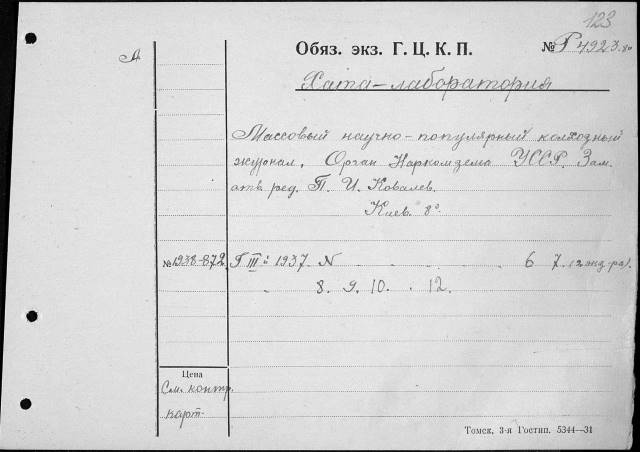 123
А
Обяз. экз. Г. Ц. К. П. № Г 4923 8°
Хата-лаборатория
Массовый научно-популярный колхозный
журнал, Орган Наркомзема УССР. Зам.
отв. ред. П. И. Ковалев.
Киев. 8°.
№ 1938-872. Г III й 1937. N . . . . 6 7. (2 экд-ра).
8. 9. 10. . 12.
Цена
См. контр.
карт.
Томск, 3-я Гостип. 5344—31